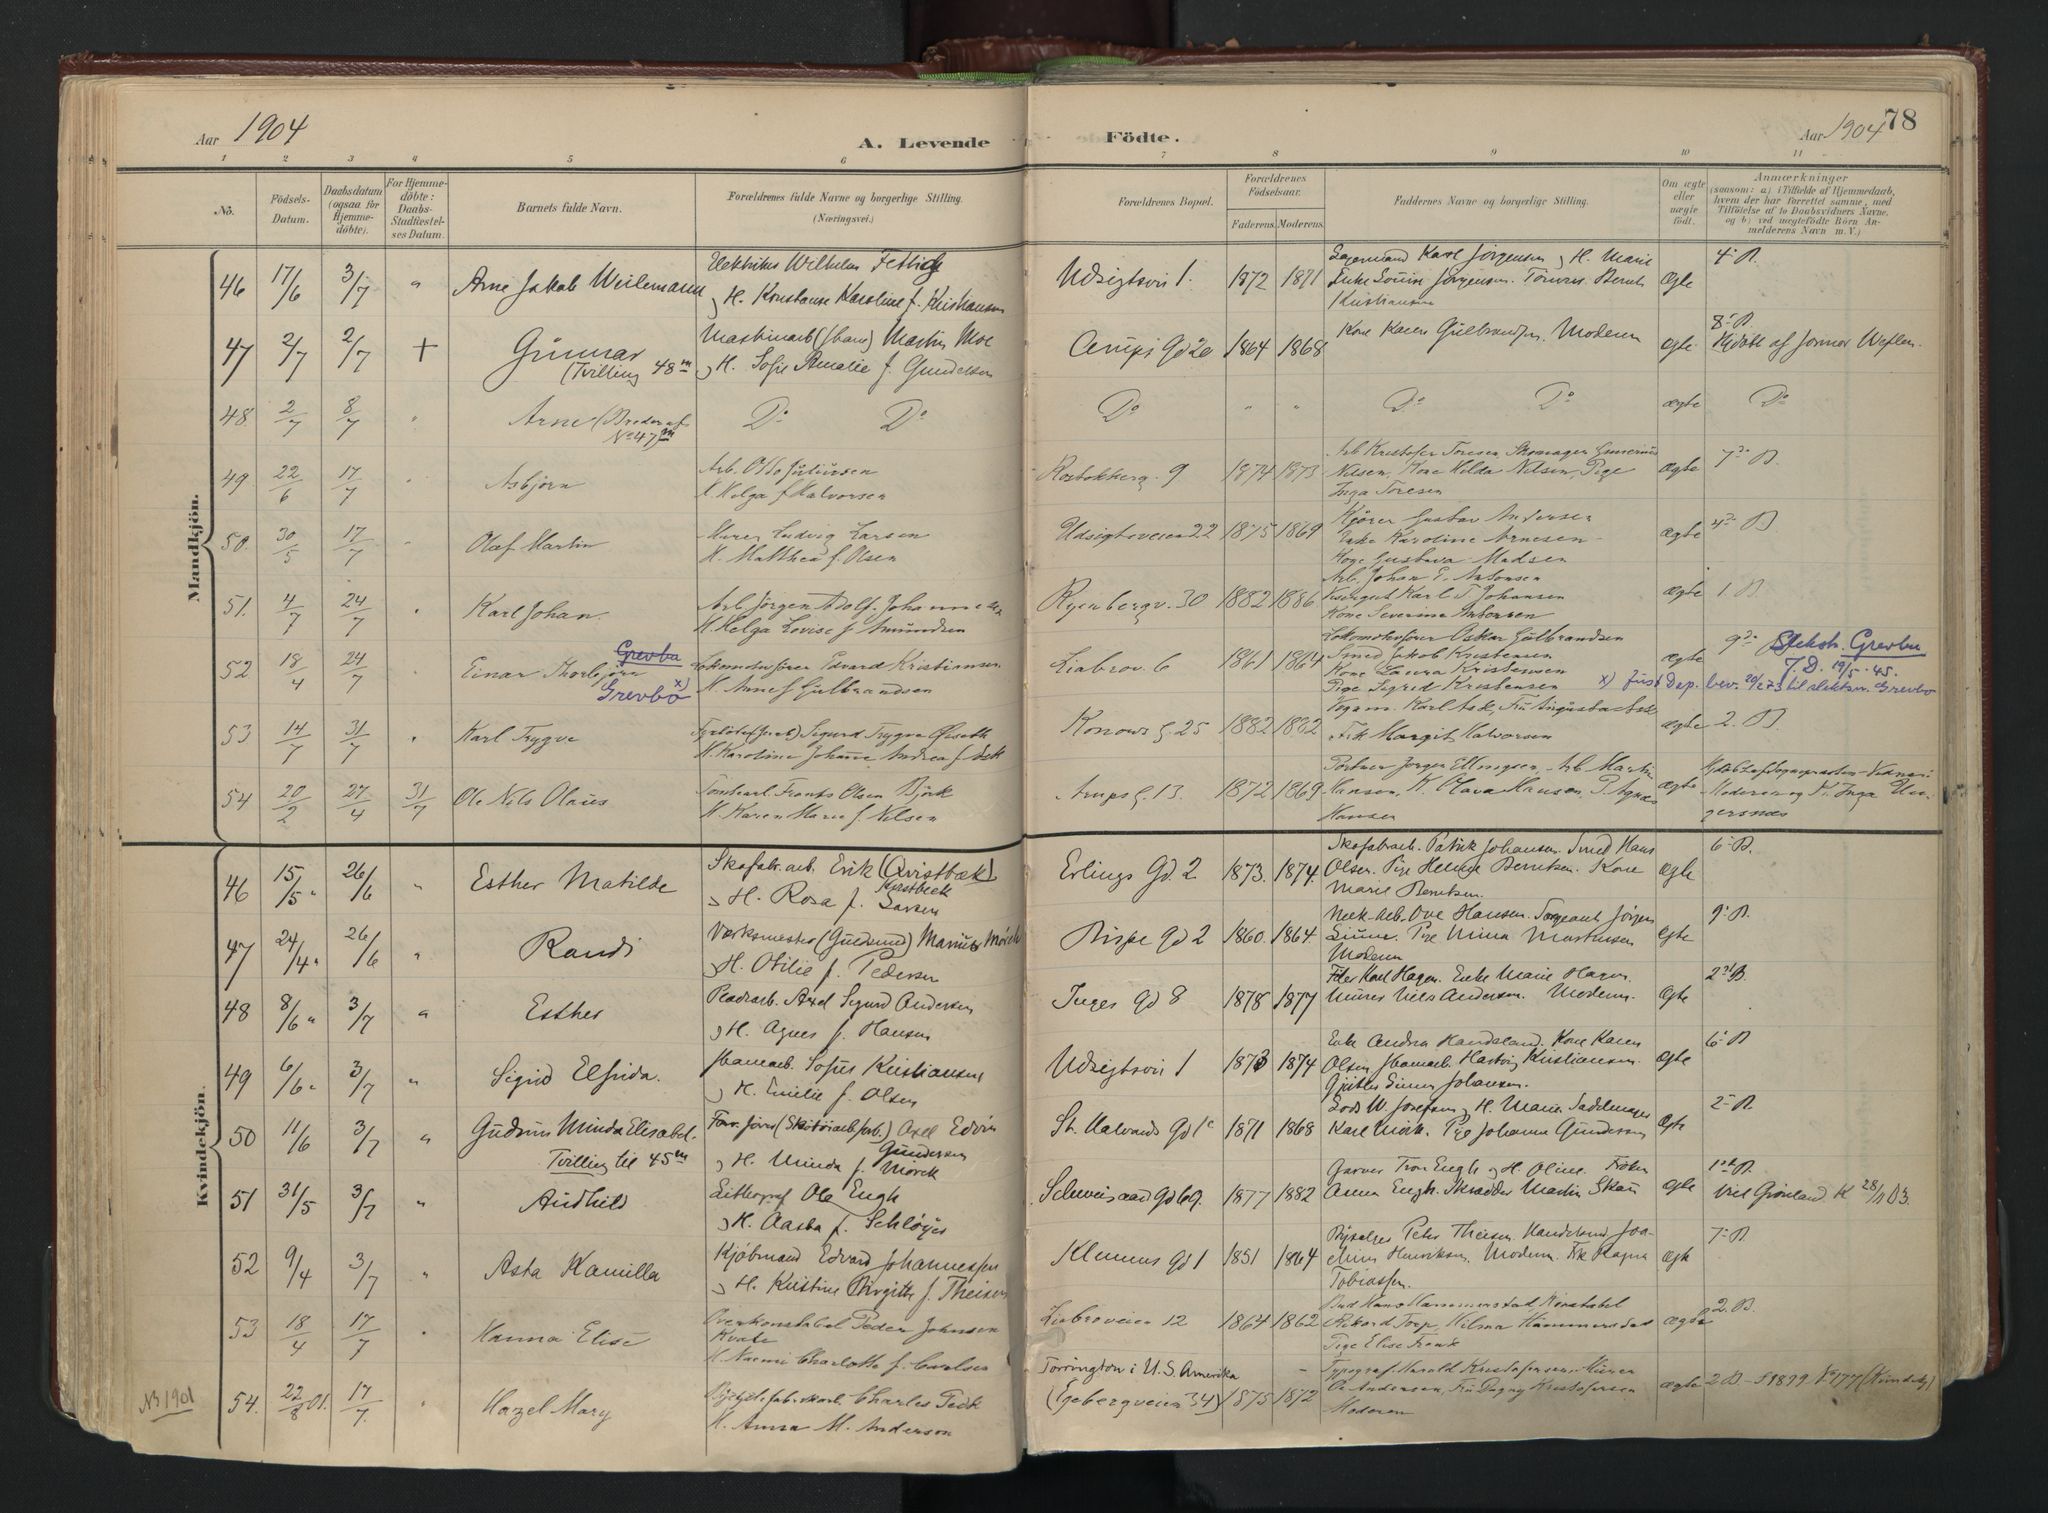 Aar 1904
A. Levende
Födte.
Aar 1904
78
1 2 3 4 5 6 7 8 9 10 11
No.
Födsels-
Datum.
Daabsdatum
(ogsaa for
Hjemme-
döbte).
For Hjemme-
döbte:
Daabs-
Stadfæstel-
ses Datum.
Barnets fulde Navn.
Forældrenes fulde Navne og borgerlige Stilling.
(Næringsvei.)
Forældrenes Bopæl.
Forældrenes
Födselsaar.
Faderens. Moderens.
Faddernes Navne og borgerlige Stilling.
Om ægte
eller
uægte
født.
Anmærkninger
(saasom: a) i Tilfælde af Hjemmedaab,
hvem der har forrettet samme, med
Tilföielse af to Daabsvidners Navne,
og b) ved uægtefödte Börn An-
melderens Navn m. V.)
Mandkjön.
46 17/6 3/7 " Arne Jakob Weilemann
Wilhelm
H. Konstanse Karoline f. Kristiansen
Udsigtsvei 1. 1872 1871
Karl Jörgensen H. Marie
Enke Jörgensen. Bernt
Kristiansen
ægte 4 B.
47 2/7 2/7 + Gunnar
(Tvilling 48 m
Martin Moe
H. Sofie Amalie f. Gundersen
Arups Gd 20 1864 1868
Kone Karen Gulbrandsen. Moderen
ægte 8 B.
Hjdöbt af Jormor
48. 2/7 8/7 " Arne (Broder af
No 47 m
Do Do
Do " " Do Do ægte Do
49. 22/6 17/7 " Asbjörn
Arb. Otto Juliussen
H. Helga f. Halvorsen
Rostokberg. 9 1874 1873
Arb Kristofer Toresen, Skomager
Nilsen, Kone Hilda Nilsen, Pige
Inga Toresen
ægte 7 B.
50. 30/5 17/7 " Olaf Martin
Murer Ludvig Larsen
H. Matthea f. Olsen
Udsigtsveien 22 1875 1869
Kjörer Gustav Andersen
Enke Karoline Arnesen
Gustava Madsen
ægte 4 B
51. 4/7 24/7 " Karl Johan.
Arb Jörgen Adolf Johannesen
H. Helga Lovise f. Amundsen
Ryenbergv. 30 1882 1886
Arb. Johan E. Antonsen
Karl J. Johansen
Kone Severine Antonsen
ægte 1. B
52 18/4 24/7 " Einar Thorbjörn
Grevbu
Grevbo x)
Lokomotivfører Edvard Kristensen
H. Anne f. Gulbrandsen
Liabrov. 6 1861 1864
Lokomotivfører Oskar Gulbrandsen
Smed Jakob Kristensen
Kone Laura Kristensen
Pige Sigrid Kristensen
ægte 9 B
Slektsn. Grevbu
J.D. 19/5. 45.
x) Just.Dep. bev. 20/2 73 til slektsn. Grevbo
53 14/7 31/7 " Karl Trygve
Sigurd Trygve
H. Karoline Johanne Andrea f. Ask
Konows g. 25 1882 1882
Karl Ask, Fru Augusta Ask
Frk Margit Halvorsen
ægte 2. B
54 20/2 27/4 31/7 Ole Nils Olaus
Tömkarl Frants Olsen Björk
H. Karen Marie f. Nilsen
Arups g. 13. 1872 1869
Portner Jörgen Ellingsen, Arb. Martin
Hansen, K. Olava Hansen, P. Agnes
Hansen
ægte
Moderen og K. Inga Un-
gersnes
Kvindekjön.
46 15/5 " 26/6 " Esther Matilde
Skofabr. arb. Erik (Qvistbæk)
Kvistbæk
H. Rosa f. Larsen
Erlings Gd 2 1873. 1874.
Skofabarb. Patrik Johansen. Smed Hans
Olsen. Pige Helene Berntsen. Kone
Marie Berntsen.
ægte 6 B.
47 24/4 " 26/6 " Randi
Værksmester (Guldsmed) Marius Mörch
H. Otilie f. Pedersen
Bispe Gd 2 1860. 1864.
Mek-Arb. Ove Hansen. Sergeant Jörgen
Pige Mina Martinsen
Moderen
ægte 9 B.
48 8/6 " 3/7 " Esther
Axel Sigurd Andersen
H. Agnes f. Hansen
Inges Gd 8 1878 1877
Filer Karl Hagen. Enke Marie Hagen.
Murer Nils Andersen. Moderen.
ægte 2 B.
49 6/6 " 3/7 " Sigrid Elfrida.
Sofus Kristiansen
H. Emilie f. Olsen
Udsigtsvei 1 1873 1874
Enke Andrea Kone Karen
Olsen Hartvig Kristiansen.
Johansen.
ægte 6 B
50 11/6 3/7 " Gudrun Minda Elisabet.
Tvilling til 45 m
Axel Edvin
Gundersen
H. Minda f. Mörck
St. Halvards Gd 1 c 1871 1868
Lods W. Josefsen H. Marie. Sadelmager
Karl Mörk. Pige Johanna Gundersen
ægte 2 B
51 31/5 3/7 " Audhild
Lithograf Ole Engh
H. Aasta f. Schlöyer
Schweisaad Gd 69. 1877 1882
Garver Tron Engh og H. Oline. Frøken
Anna Engh. Skrædder Martin Skau
ægte 1ste B.
Viet Grönland K 28/11 03.
52 9/4 3/7 " Asta Kamilla
Kjöbmand Edvard Johannessen
H. Kristine Birgitte f. Theisen
Klemens Gd 1 1851 1864
Peter Theisen. Handelsmd Joa-
chim Henriksen. Moderen. Frk Ragna
Tobiassen.
ægte 7 B.
53 18/4 17/7 " Hanna Elise
Overkonstabel Peder Johnsen
Kvale
H. Naemi Charlotte f. Carlsen
Liabroveien 12 1864 1862
Bud Hans Hammerstad Konstabel
Rikard Torp, Hilma Hammerstad
Pige Elise Frank
ægte 2. B.
NB 1901
54. 22/8 01. 17/7. Hazel Mary
Charles Feek
H. Anna M. Anderson
Torrington i U.S. Amerika
(Egebergveien 34) 1875 1872
Typograf Harald Kristofersen, Murer
A. Andersen, Fru Dagny Kristofersen
Moderen
ægte 2 B - F 1899 No 177 (Kvindekj)